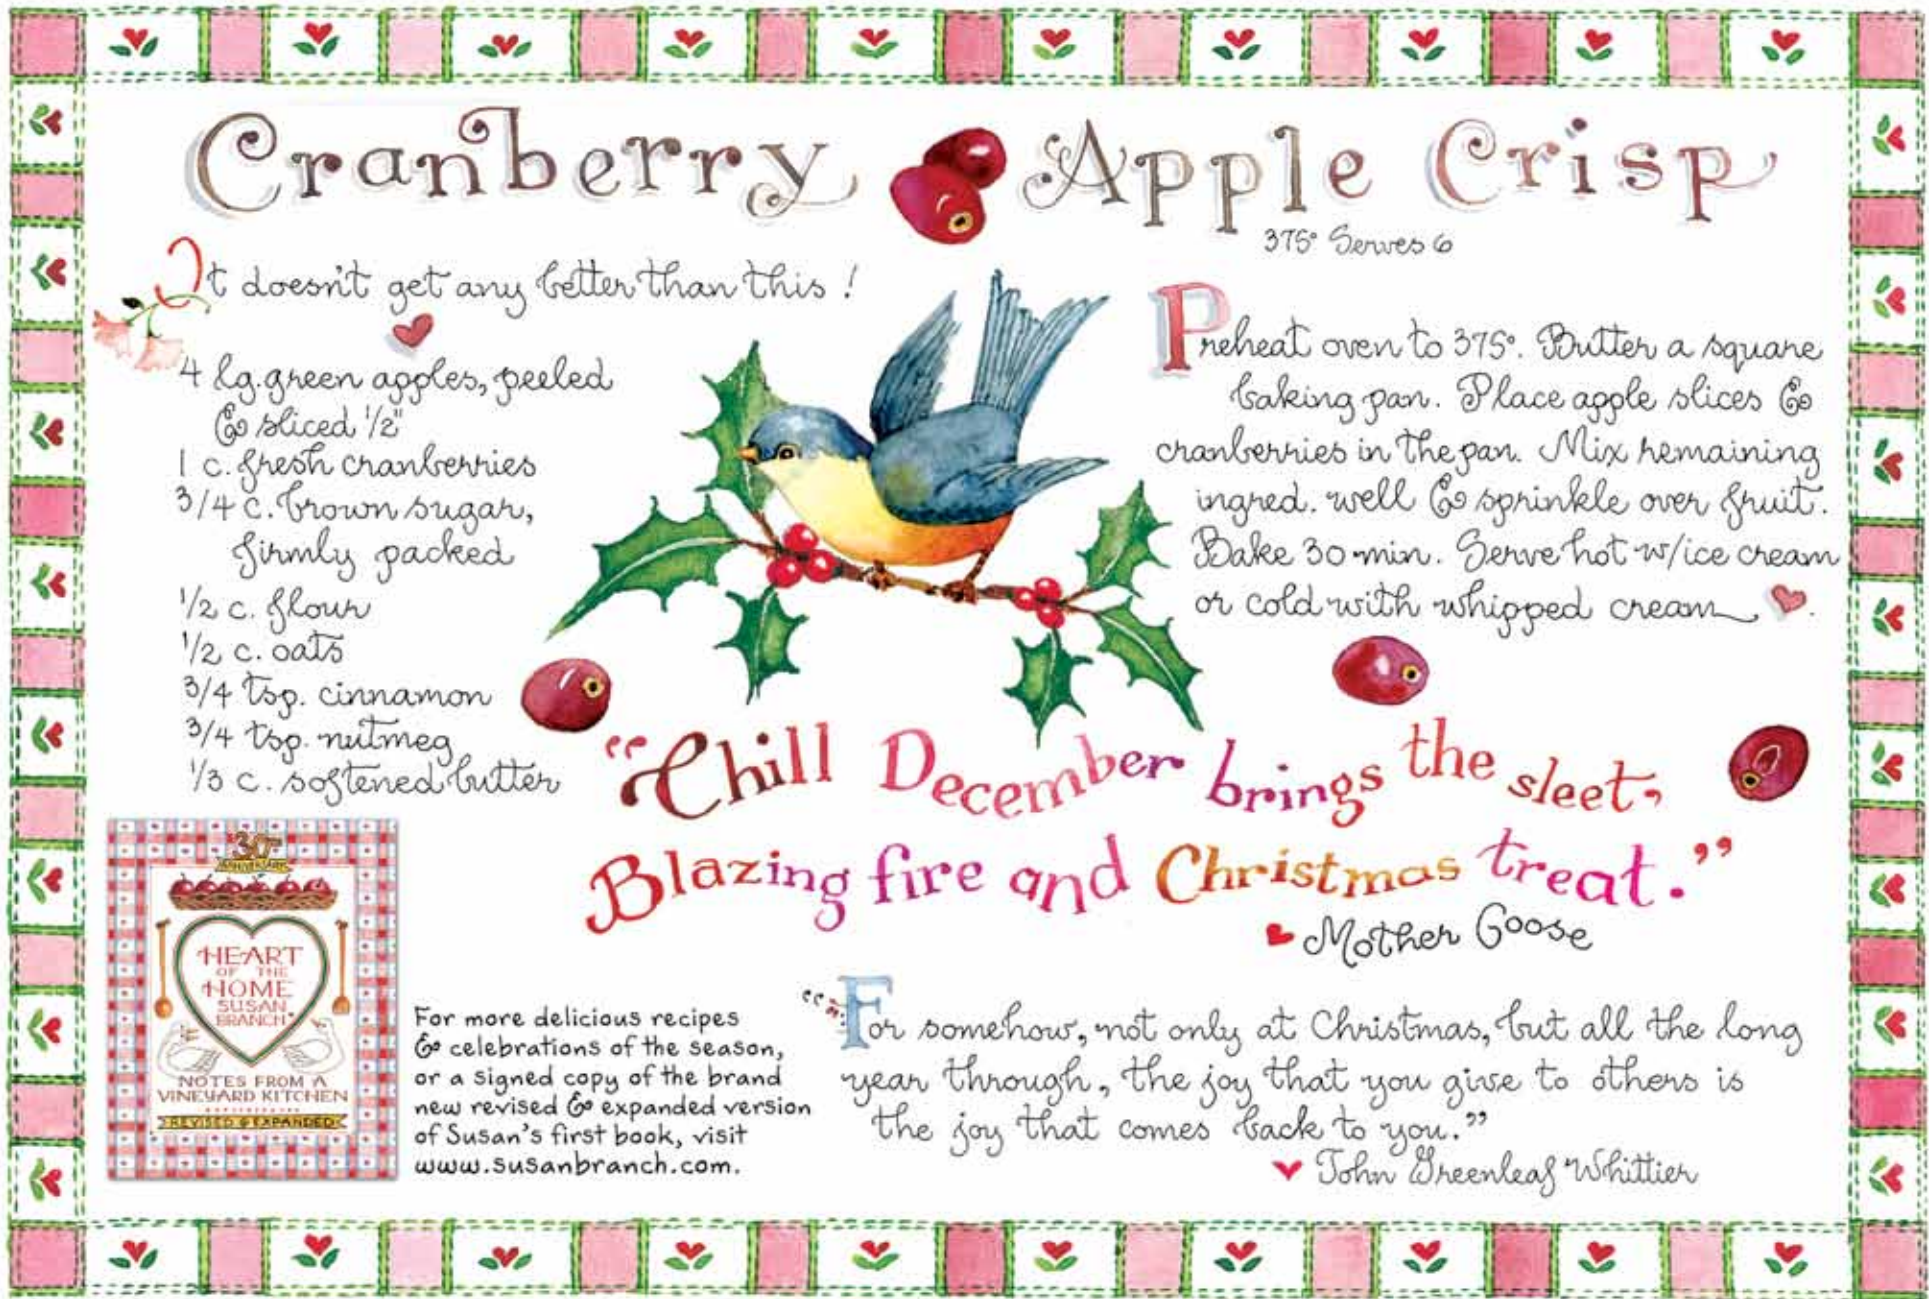 Cranberry Apple Crisp
375° Serves 6
It doesn't get any better than this!
4 lg. green apples, peeled
& sliced 1/2"
1 c. fresh cranberries
3/4 c. brown sugar,
firmly packed
1/2 c. flour
1/2 c. oats
3/4 tsp. cinnamon
3/4 tsp. nutmeg
1/3 c. softened butter
Preheat oven to 375°. Butter a square
baking pan. Place apple slices &
cranberries in the pan. Mix remaining
ingred. well & sprinkle over fruit.
Bake 30 min. Serve hot w/ice cream
or cold with whipped cream.
"Chill December brings the sleet,
Blazing fire and Christmas treat."
Mother Goose
30th
ANNIVERSARY
HEART
OF THE
HOME
SUSAN
BRANCH
NOTES FROM A
VINEYARD KITCHEN
REVISED & EXPANDED
For more delicious recipes
& celebrations of the season,
or a signed copy of the brand
new revised & expanded version
of Susan's first book, visit
www.susanbranch.com.
"For somehow, not only at Christmas, but all the long
year through, the joy that you give to others is
the joy that comes back to you."
John Greenleaf Whittier